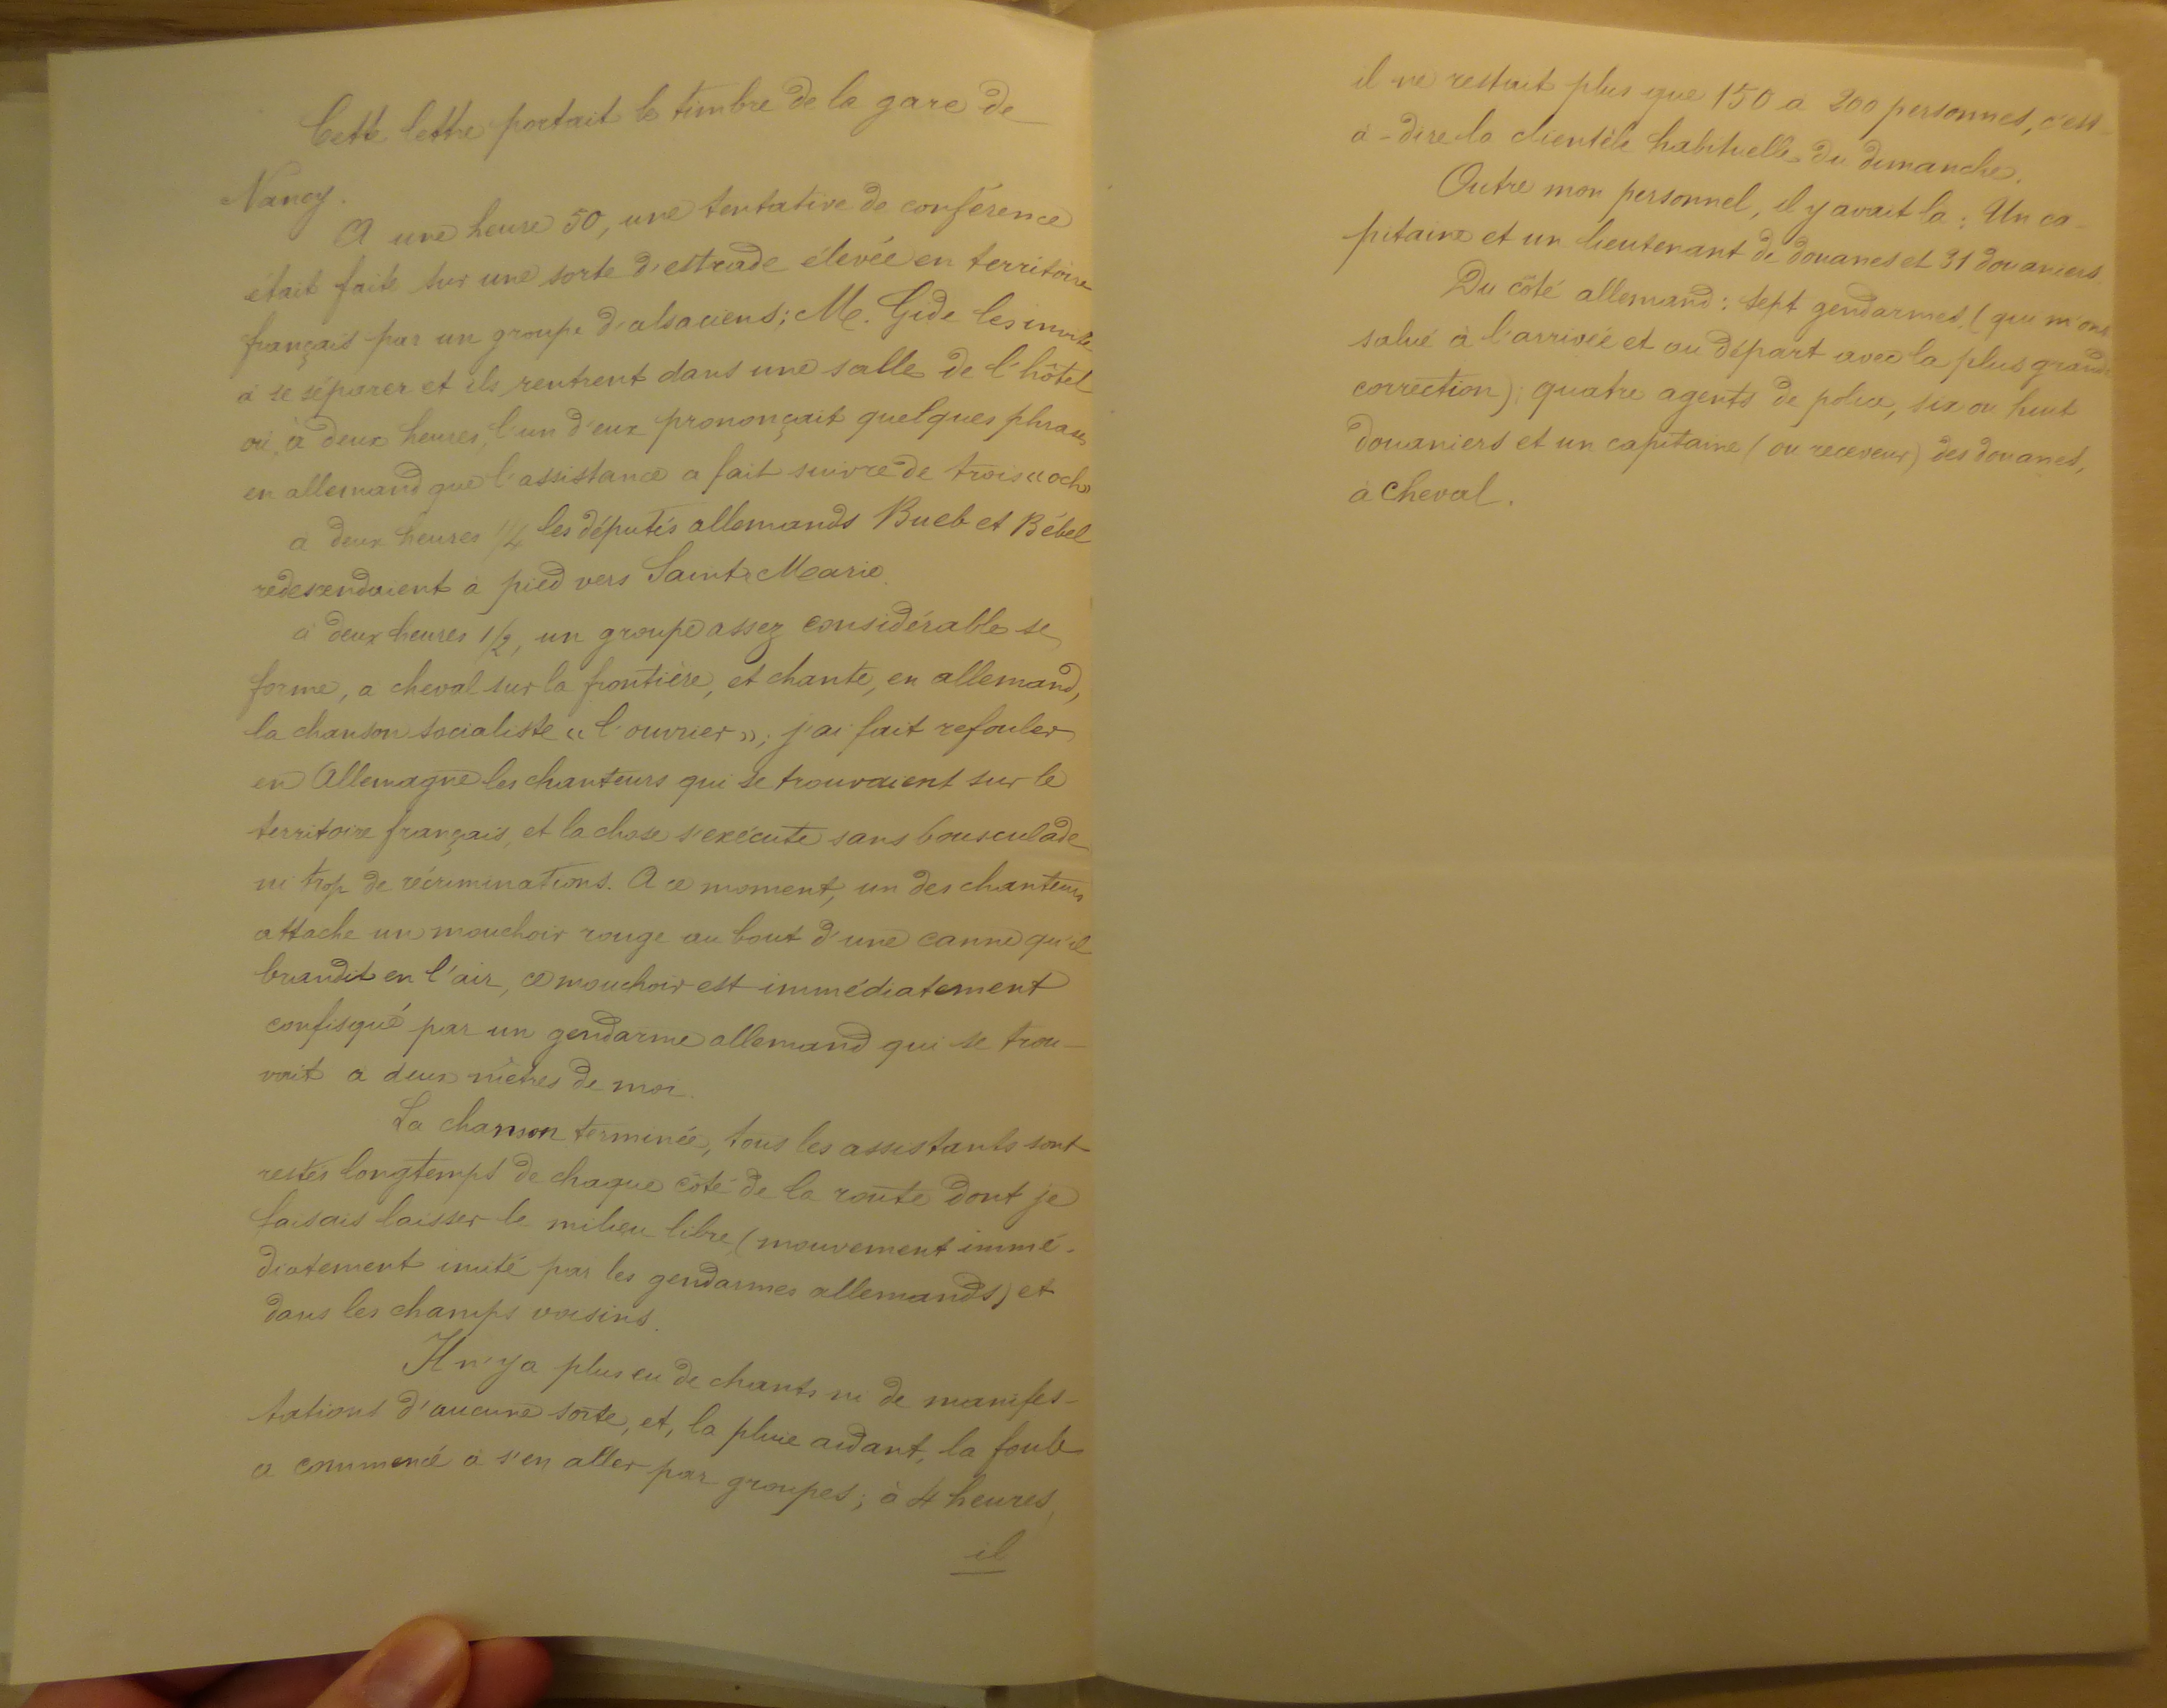 Cette lettre portait le timbre de la gare de
Nancy.
A une heure 50, une tentative de conférence
était faite sur une sorte d'estrade élevée en territoire
français par un groupe d'alsaciens; M. Gide les invite
à se séparer et ils rentrent dans une salle de l'hôtel
où, à deux heures, l'un d'eux prononçait quelques phrases
en allemand que l'assistance a fait suivre de trois « och »
à deux heures 1/4 les députés allemands Bueb et Bébel
redescendaient à pied vers Sainte Marie.
à deux heures 1/2, un groupe assez considérable se
forme, a cheval sur la frontière, et chante, en allemand,
la chanson socialiste « l'ouvrier »; j'ai fait refouler
en Allemagne les chanteurs qui se trouvaient sur le
territoire français, et la chose s'exécute sans bousculade
ni trop de récriminations. A ce moment, un des chanteurs
attache un mouchoir rouge au bout d'une canne qu'il
brandit en l'air, ce mouchoir est immédiatement
confisqué par un gendarme allemand qui se trou-
vait à deux mètres de moi.
La chanson terminée, tous les assistants sont
restés longtemps de chaque côté de la route dont je
faisais laisser le milieu libre (mouvement immé-
diatement imité par les gendarmes allemands) et
dans les champs voisins.
Il n'y a plus eu de chants ni de manifes-
tations d'aucune sorte, et, la pluie aidant, la foule
a commencé à s'en aller par groupes; à 4 heures,
il
il ne restait plus que 150 a 200 personnes, c'est-
à-dire la clientèle habituelle du dimanche.
Outre mon personnel, il y avait là : Un ca-
pitaine et un lieutenant de douanes et 31 douaniers.
Du côté allemand : sept gendarmes (qui m'ont
salué à l'arrivée et au départ avec la plus grande
correction); quatre agents de police, six ou huit
douaniers et un capitaine (ou receveur) des douanes,
à cheval.